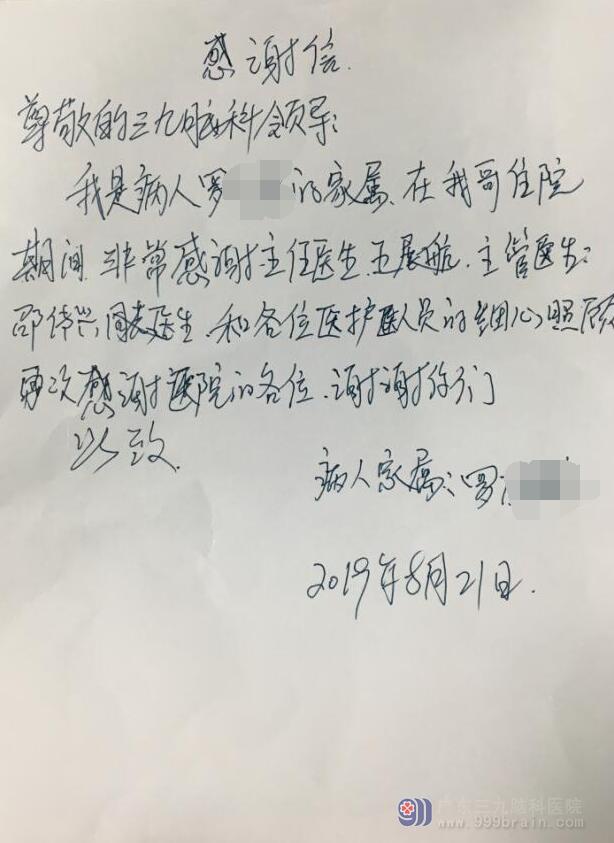 感谢信.
尊敬的三九脑科领导:
我是病人罗 的家属、在我哥住院
期间 非常感谢主任医生王展航、主管医生:
邵伟兴 医生、和各位医护人员的细心照顾
再次感谢医院的各位、谢谢你们
以致.
病人家属: 罗
2019年8月21日.
广东三九脑科医院
www.999brain.com